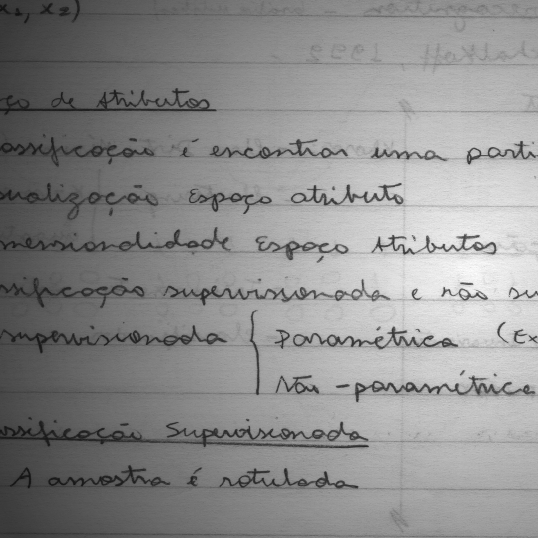 x₁, x₂)
ço de Atributos
assificação é encontrar uma parti
sualização espaço atributo
mensionalidade Espaço Atributos
ssificação supervisionada e não su
supervisionada { Paramétrica (Ex
Não-paramétrica
assificação Supervisionada
A amostra é rotulada